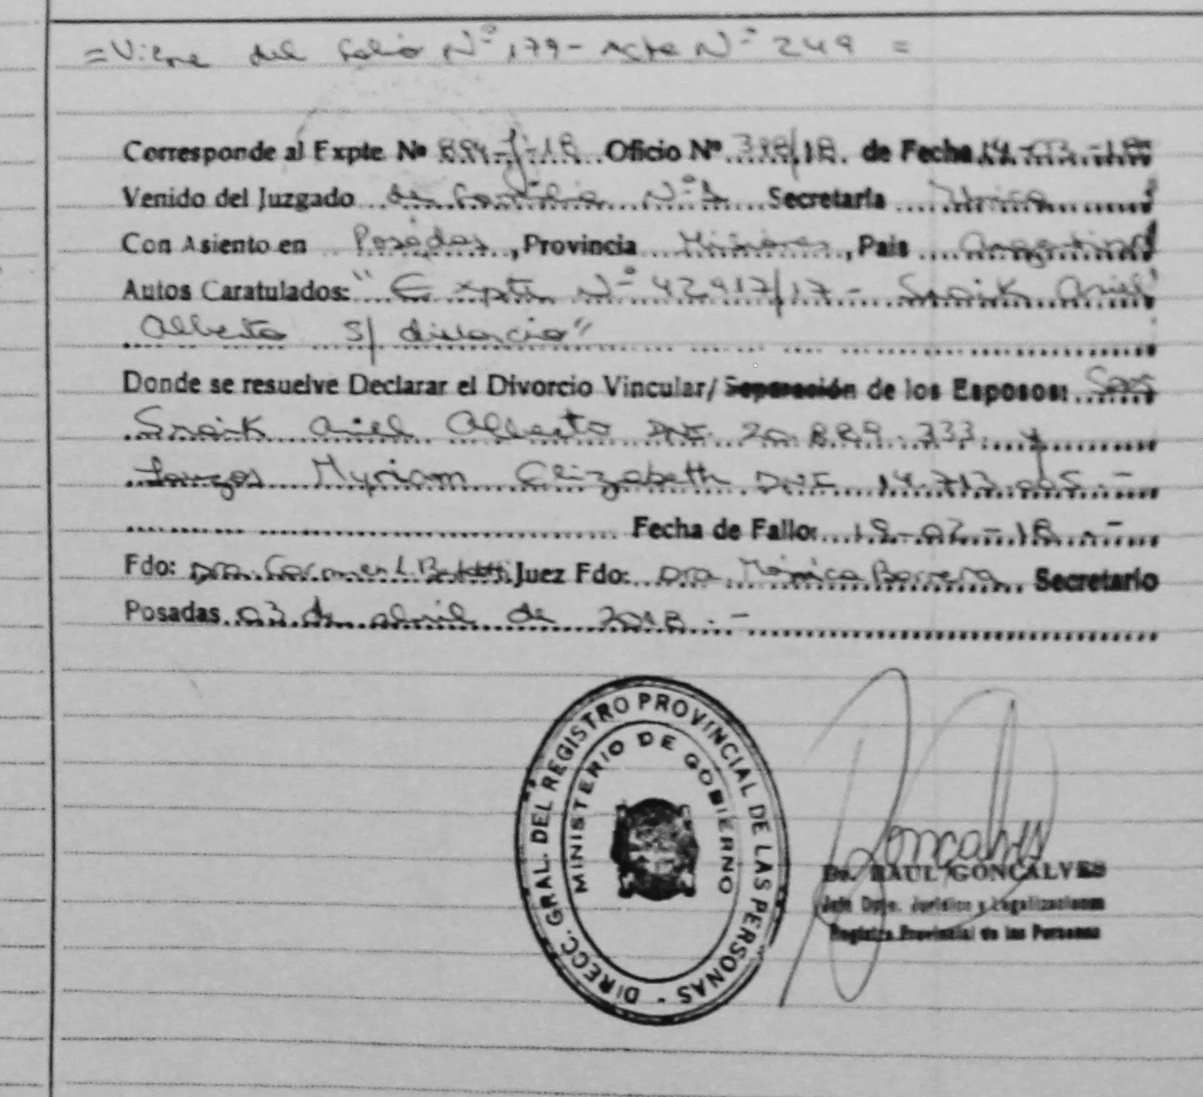 = Viene del folio Nº 179 - Acta Nº 249 =
Corresponde al Expte Nº 884-J-18 Oficio Nº 398/18. de Fecha 14-03-18
Venido del Juzgado de Familia Nº Secretaria Unica
Con Asiento en Posadas, Provincia Misiones, Pais Argentina
Autos Caratulados: "Expte Nº 42917/17 - Snaik Ariel
Alberto s/ divorcio"
Donde se resuelve Declarar el Divorcio Vincular/ Separación de los Esposos: Sres
Snaik Ariel Alberto DNI 20.889.333 y
Myriam Elizabeth DNI 14.713.005.-
Fecha de Fallo: 19-02-18.-
Fdo: Dra. Carmen L. Juez Fdo: Dra. Mónica Barrera Secretario
Posadas 03 de abril de 2018.-
DIRECC. GRAL. DEL REGISTRO PROVINCIAL DE LAS PERSONAS -
MINISTERIO DE GOBIERNO
Goncalves
Dr. RAUL GONCALVES
Jefe Dpto. Jurídico y Legalizaciones
Registro Provincial de las Personas